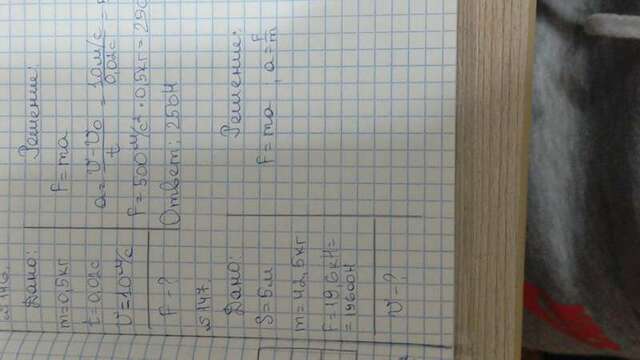 №146.
Дано:
m=0,5кг
t=0,02с
v=10м/с
F-?
Решение:
F=ma
a= v-v₀/t = 10м/с/0,02с =
F=500м/с²·0,5кг=250
Ответ: 250Н
№147
Дано:
S=5м
m=42,5кг
F=19,6кН=
=19600Н
v-?
Решение:
F=ma, a=F/m